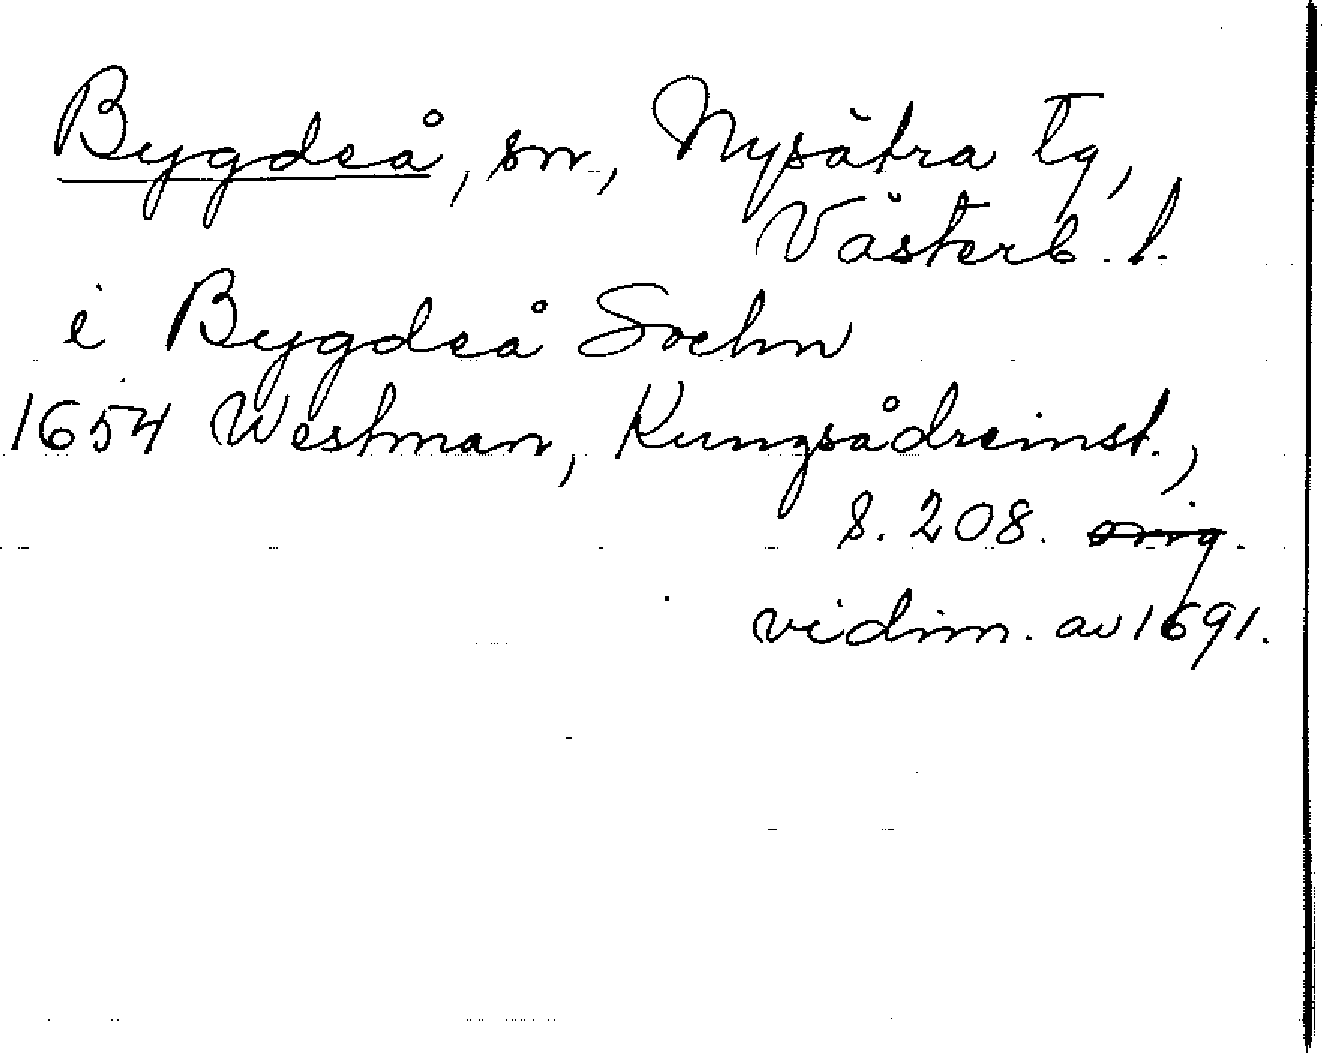 Bygdeå, sn, Nysätra tg,
Västerb. l.
i Bygdeå Sochn
1654 Westman, Kungsådreinst.,
s. 208. orig.
vidim. av 1691.